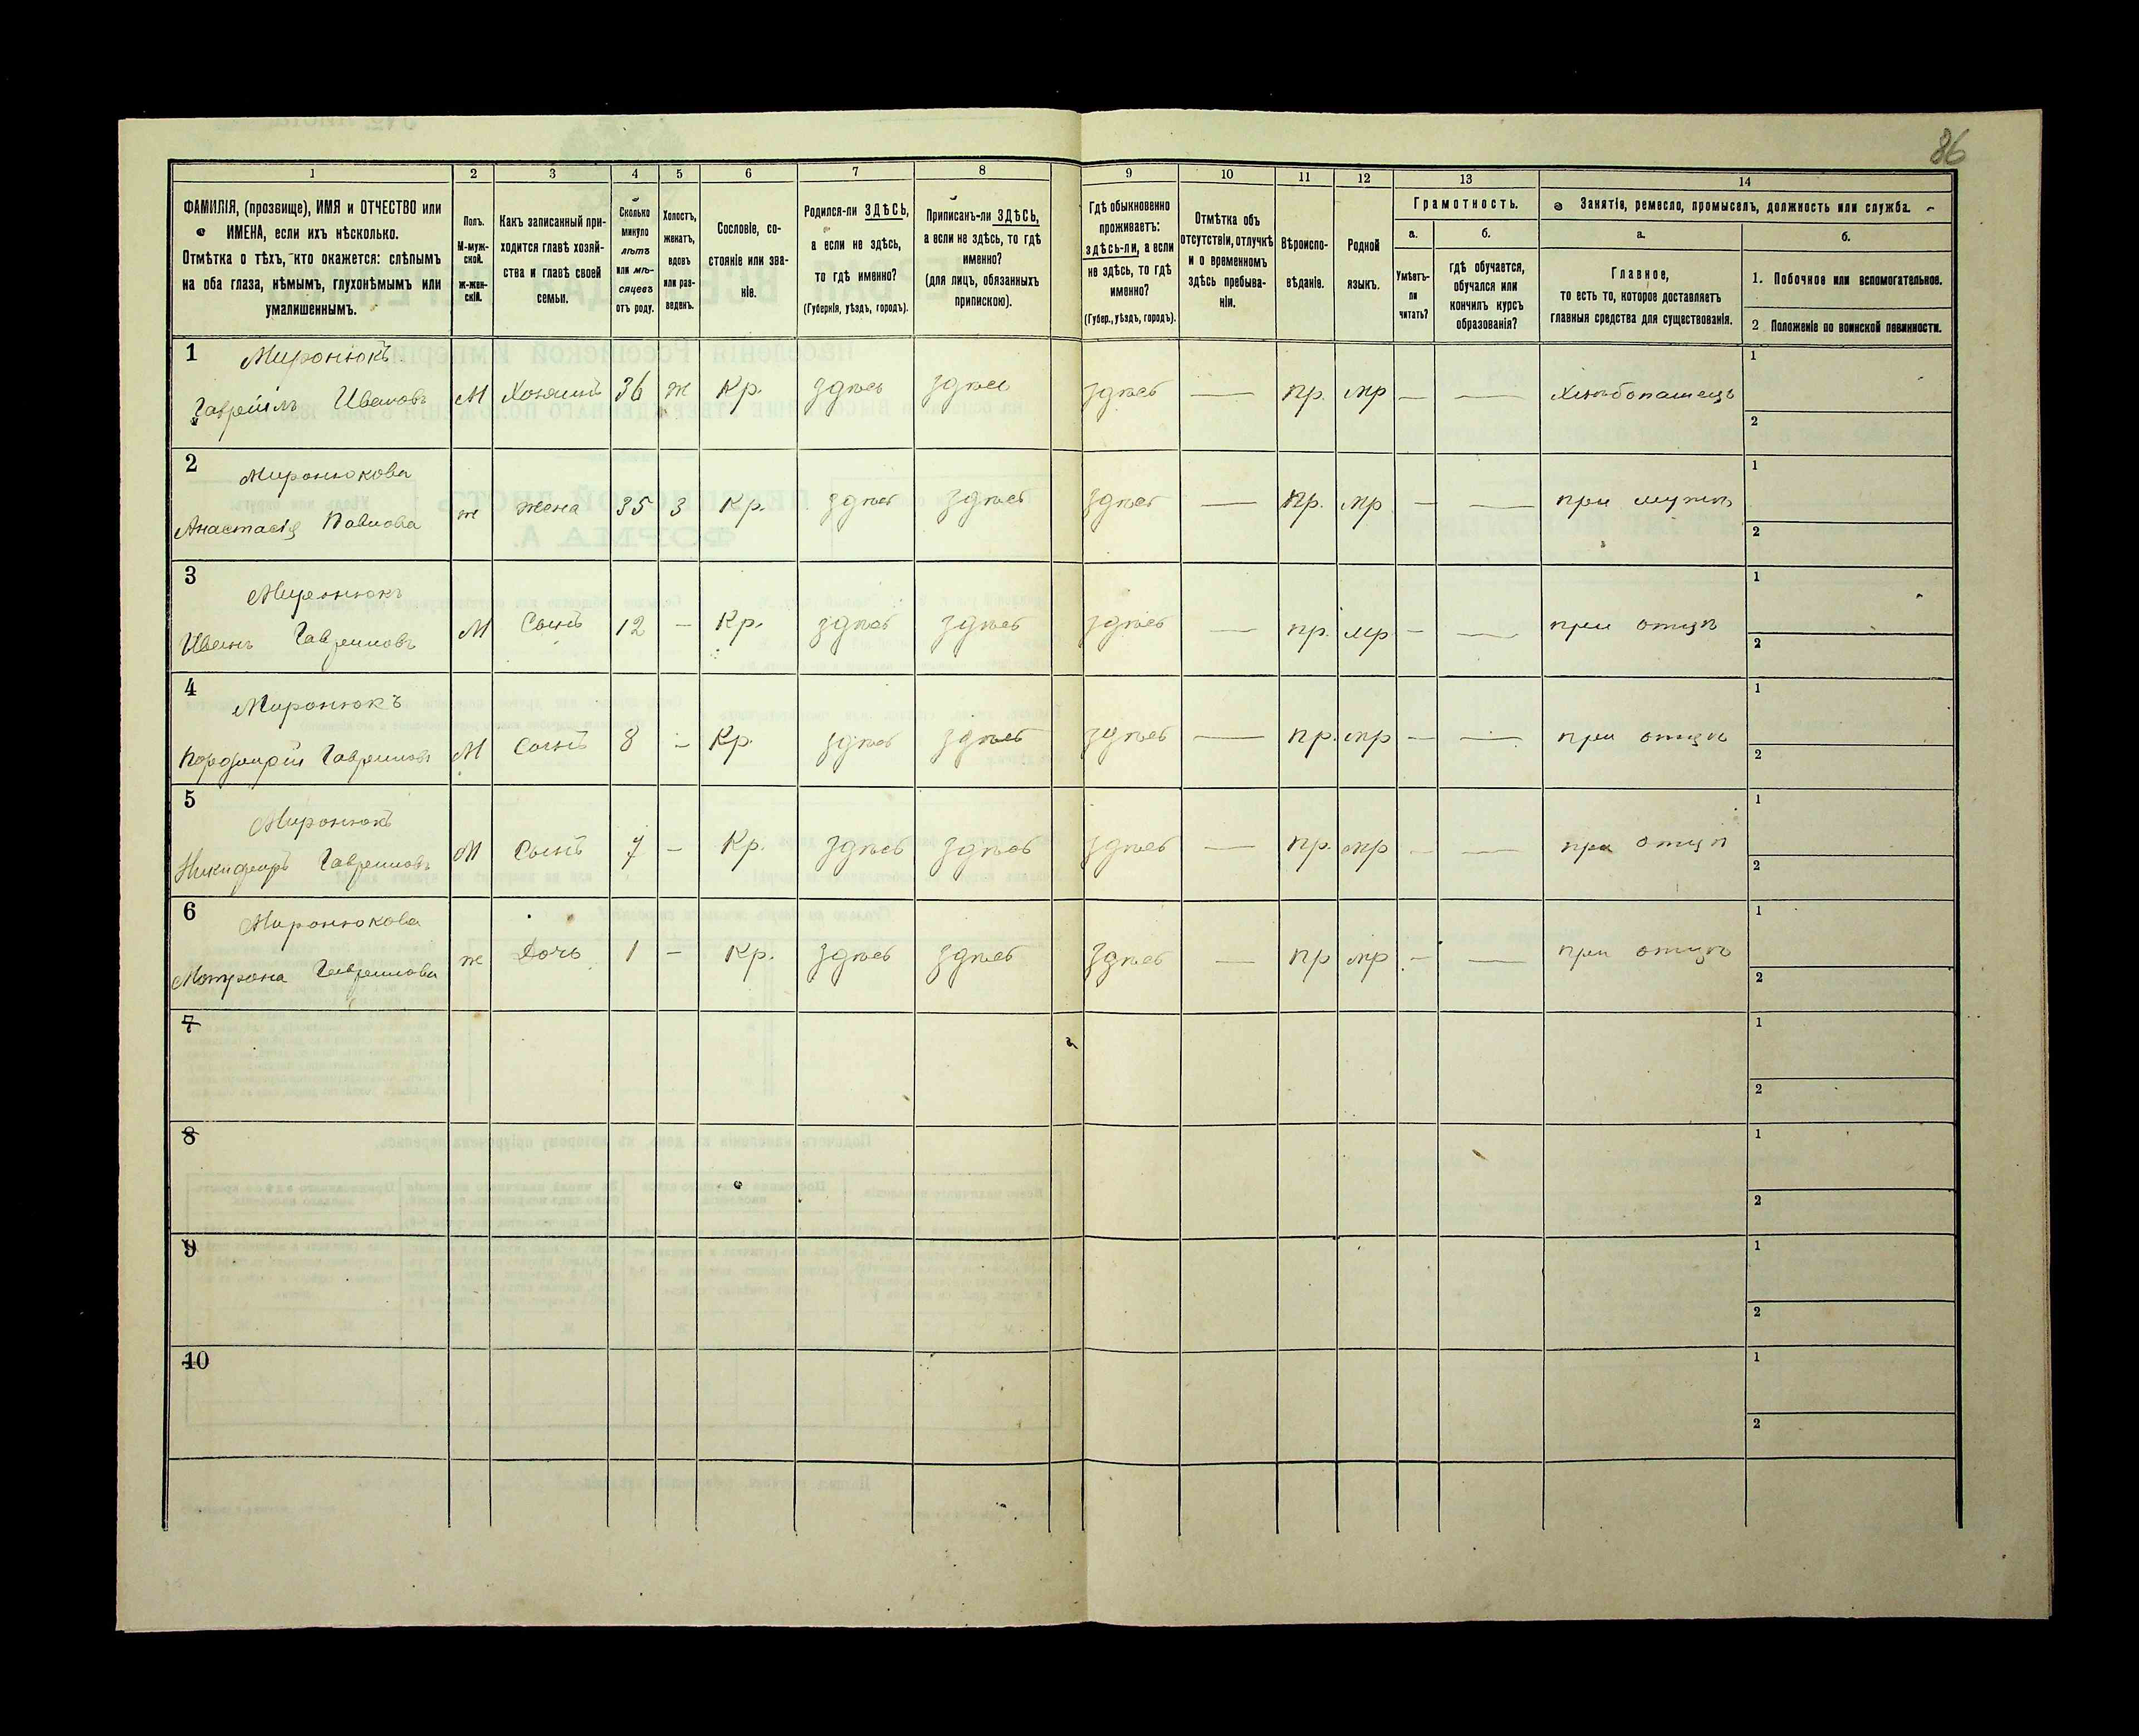 86
1 2 3 4 5 6 7 8 9 10 11 12 13 14
ФАМИЛІЯ, (прозвище), ИМЯ и ОТЧЕСТВО или
ИМЕНА, если ихъ нѣсколько.
Отмѣтка о тѣхъ, кто окажется: слѣпымъ
на оба глаза, нѣмымъ, глухонѣмымъ или
умалишеннымъ.
Полъ.
М-муж-
ской.
ж-жен-
скій.
Какъ записанный при-
ходится главѣ хозяй-
ства и главѣ своей
семьи.
Сколько
минуло
лѣтъ
или мѣ-
сяцевъ
отъ роду.
Холостъ,
женатъ,
вдовъ
или раз-
веденъ.
Сословіе, со-
стояніе или зва-
ніе.
Родился-ли ЗДѢСЬ,
а если не здѣсь,
то гдѣ именно?
(Губернія, уѣздъ, городъ).
Приписанъ-ли ЗДѢСЬ,
а если не здѣсь, то гдѣ
именно?
(для лицъ, обязанныхъ
припискою).
Гдѣ обыкновенно
проживаетъ:
здѣсь-ли, а если
не здѣсь, то гдѣ
именно?
(Губер., уѣздъ, городъ).
Отмѣтка объ
отсутствіи, отлучкѣ
и о временномъ
здѣсь пребыва-
ніи.
Вѣроиспо-
вѣданіе.
Родной
языкъ.
Грамотность.
а.
Умѣетъ-
ли
читать?
б.
гдѣ обучается,
обучался или
кончилъ курсъ
образованія?
Занятіе, ремесло, промыселъ, должность или служба.
а.
Главное,
то есть то, которое доставляетъ
главныя средства для существованія.
б.
1. Побочное или вспомогательное.
2 Положеніе по воинской повинности.
1 Миронюкъ 1
Гавріилъ Ивановъ М Хозяинъ 36 ж Кр. здѣсь здѣсь здѣсь — пр. мр — — хлѣбопашецъ
2
2 Миронюкова 1
Анастасія Павлова ж жена 35 З Кр. здѣсь здѣсь здѣсь — пр. мр — — при мужѣ
2
3 Миронюкъ 1
Иванъ Гавриловъ М Сынъ 12 — Кр. здѣсь здѣсь здѣсь — пр. мр — — при отцѣ
2
4 Миронюкъ 1
Порфирій Гавриловъ М Сынъ 8 — Кр. здѣсь здѣсь здѣсь — пр. мр — — при отцѣ
2
5 Миронюкъ 1
Никифоръ Гавриловъ М Сынъ 7 — Кр. здѣсь здѣсь здѣсь — пр. мр — — при отцѣ
2
6 Миронюкова 1
Мотрона Гаврилова ж Дочь 1 — Кр. здѣсь здѣсь здѣсь — пр мр — — при отцѣ
2
7 1
2
8 1
2
9 1
2
10 1
2